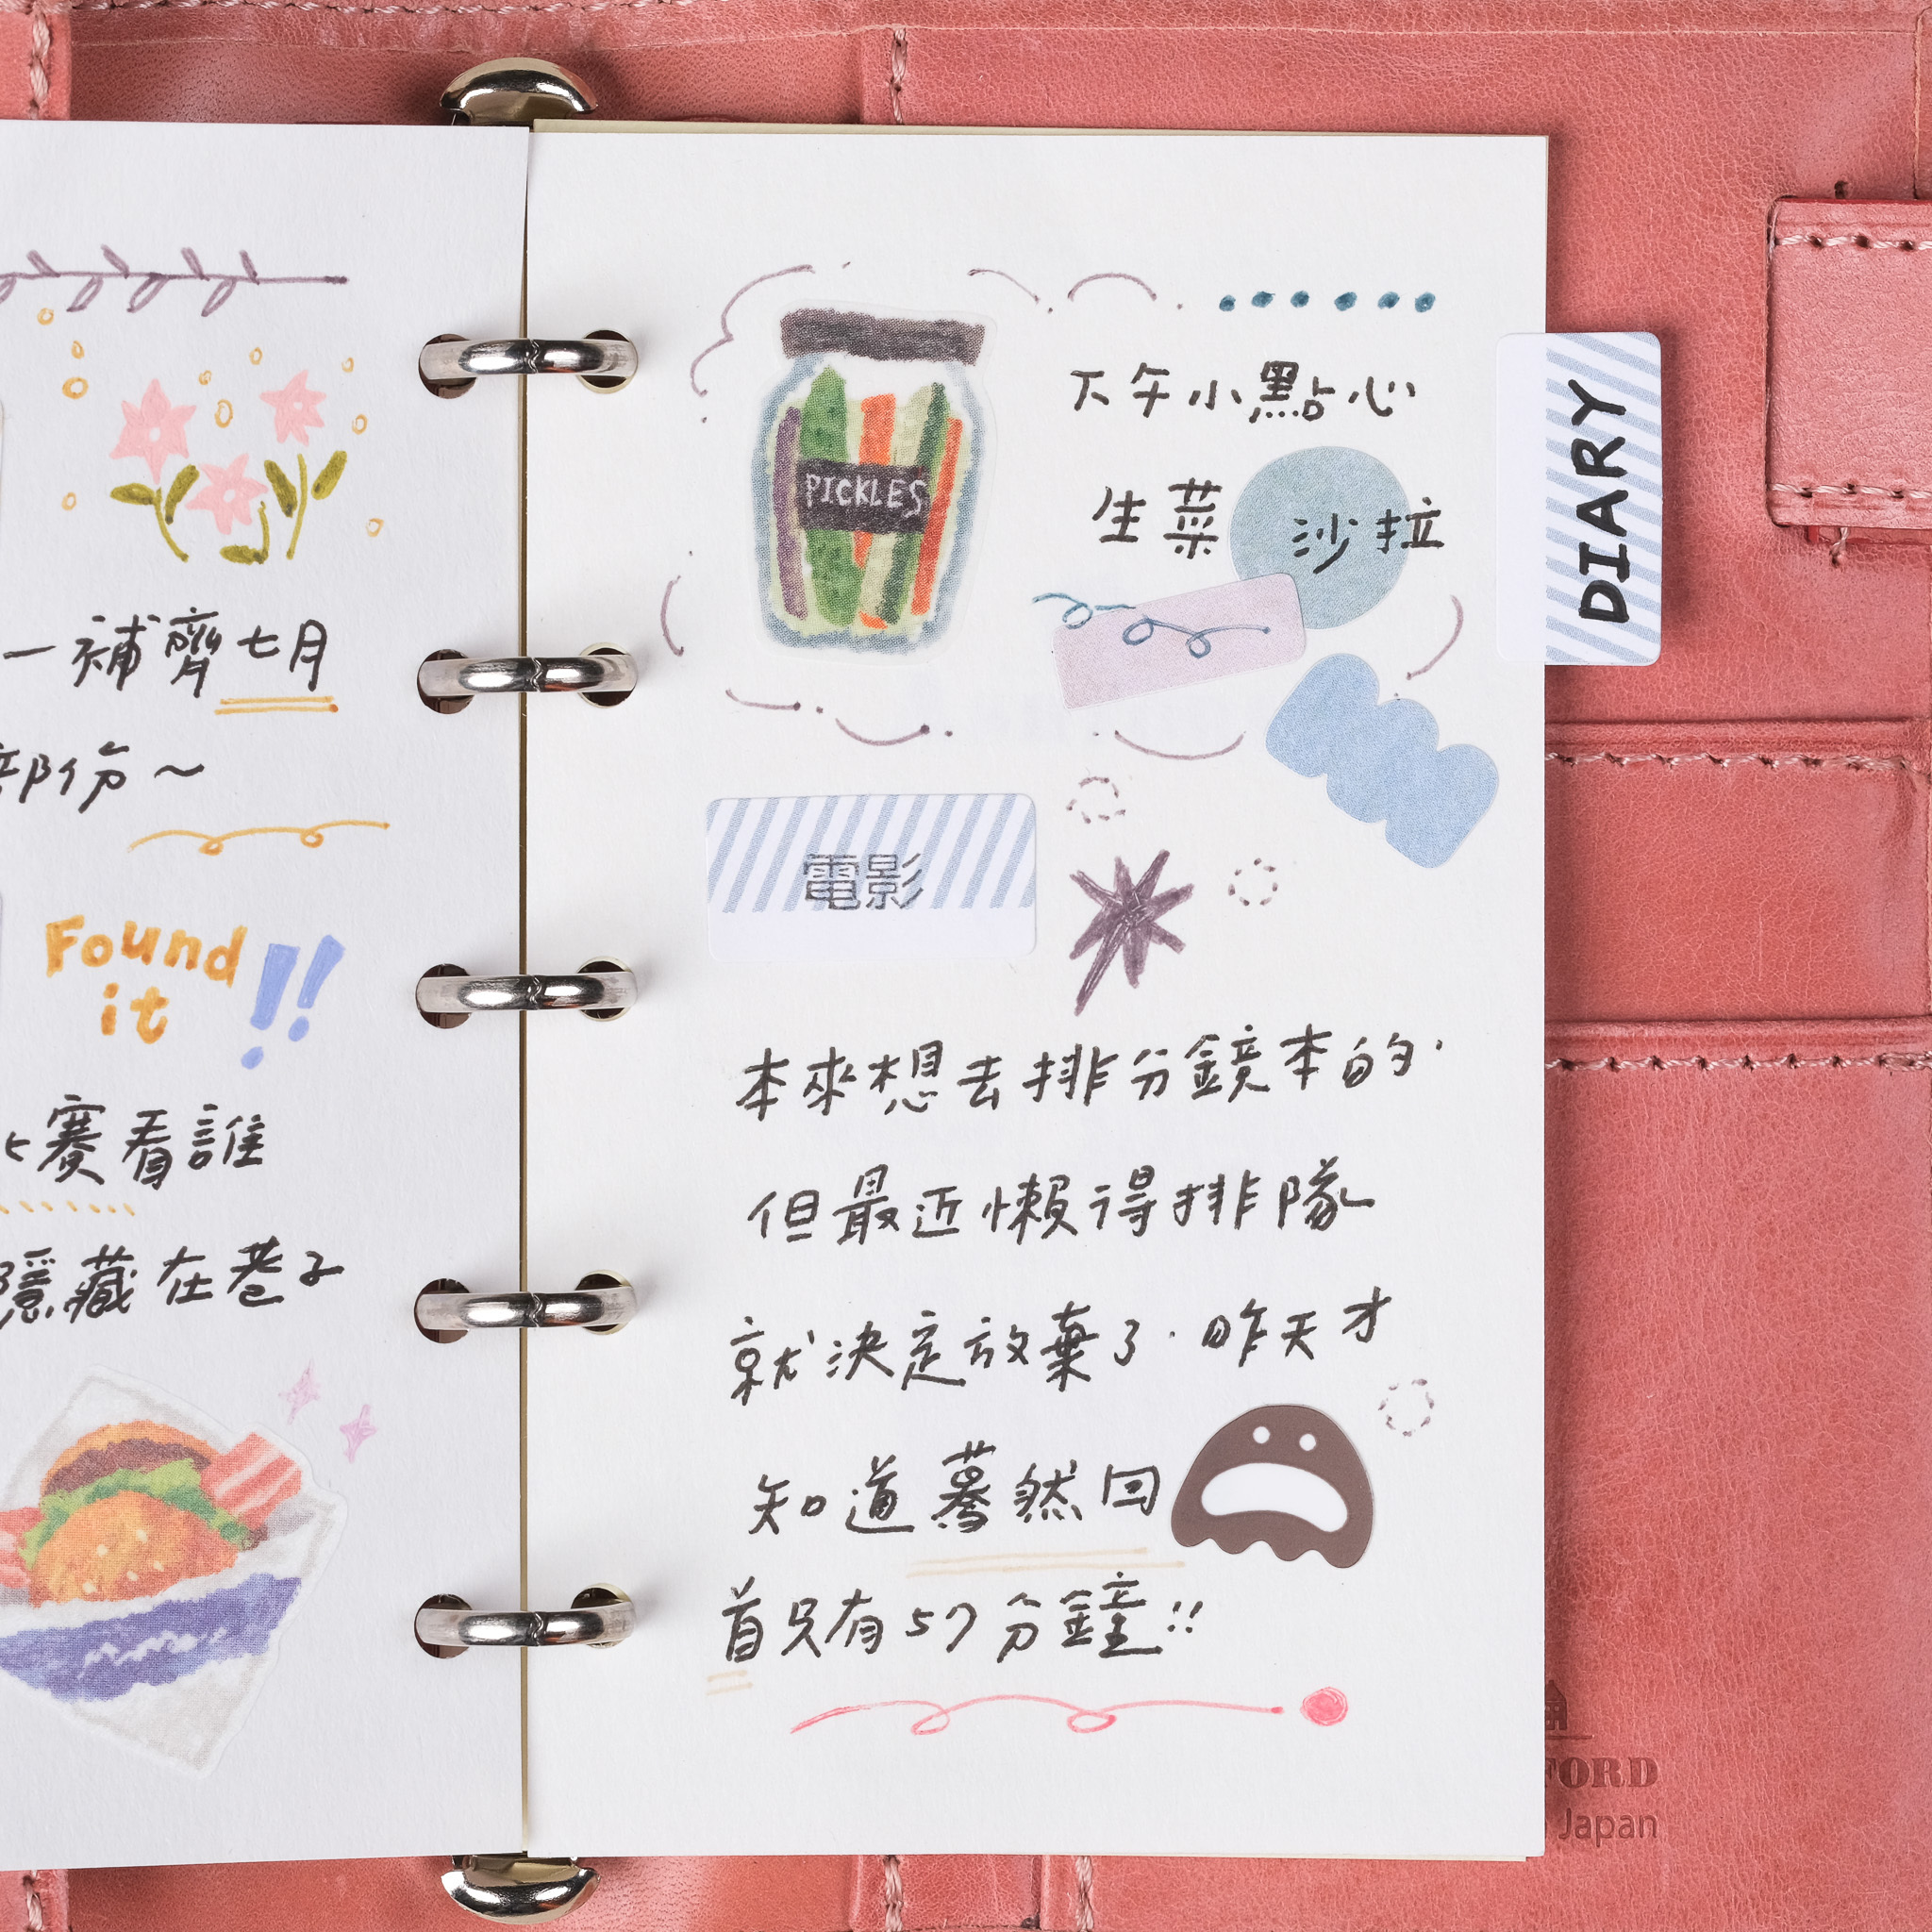 一補齊七月
部份～
Found
it!!
賽看誰
隱藏在巷子
PICKLES
下午小點心
生菜沙拉
DIARY
電影
本來想去排分鏡本的.
但最近懶得排隊
就決定放棄了.昨天才
知道驀然回
首只有57分鐘!!
FORD
Japan